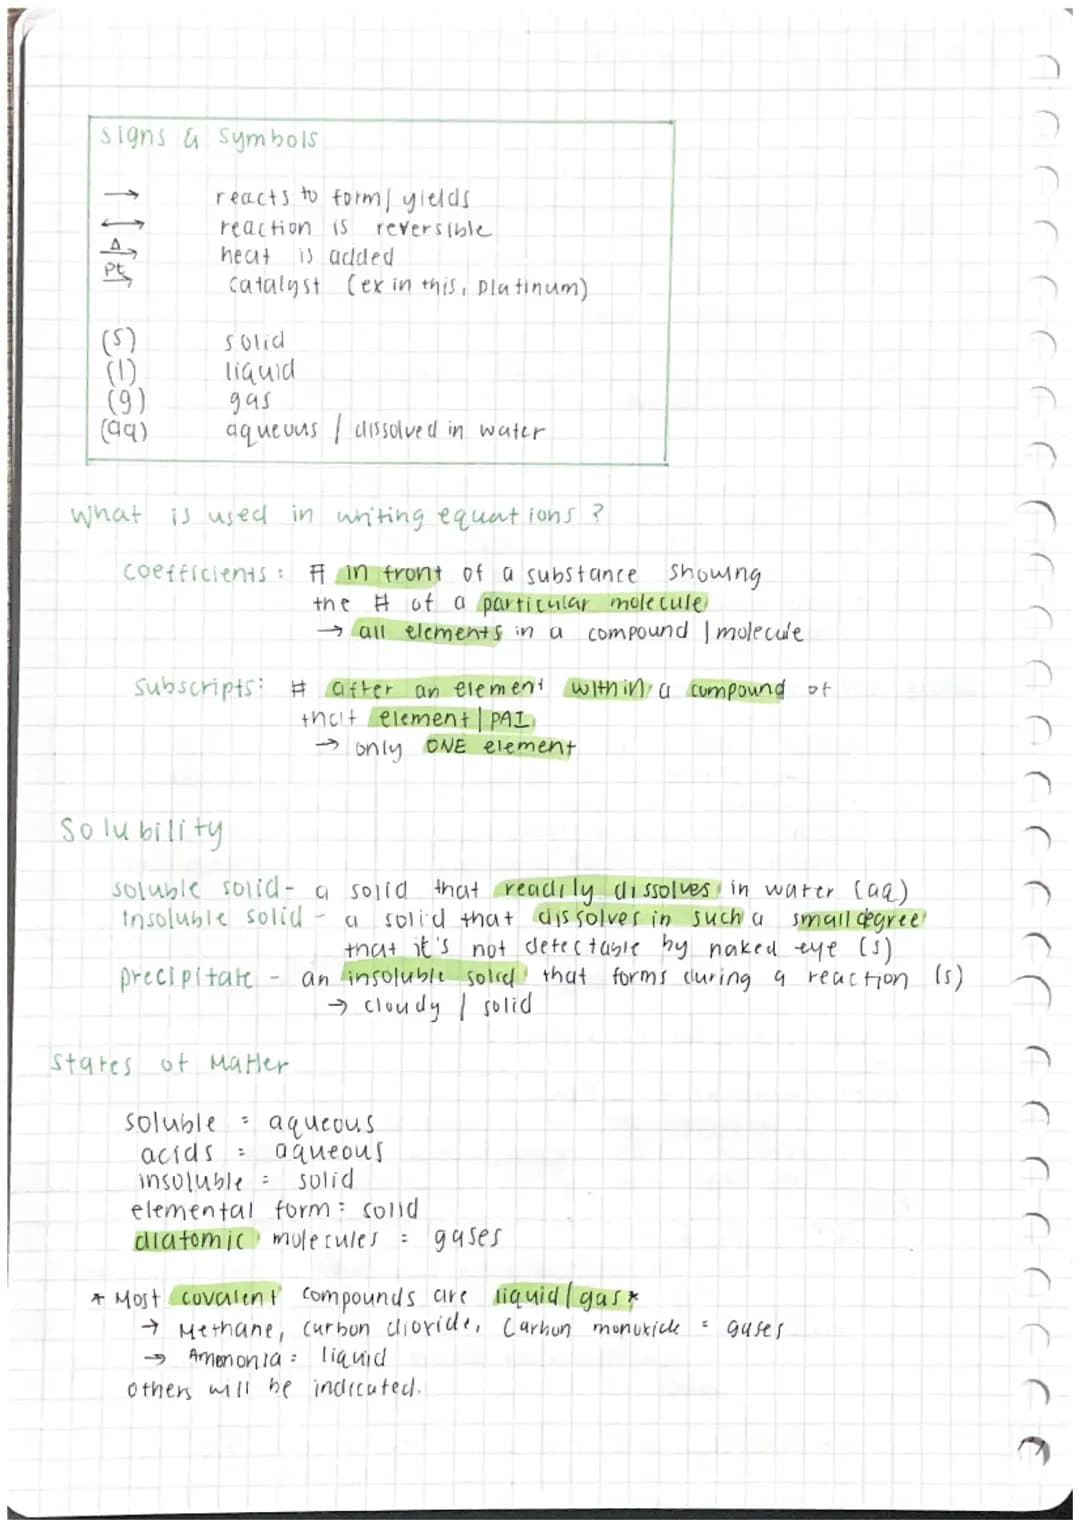 Signs & Symbols
→ reacts to form / yields
↔ reaction is reversible
Δ→ heat is added
Pt→ catalyst (ex in this, platinum)
(s) solid
(l) liquid
(g) gas
(aq) aqueous / dissolved in water
What is used in writing equations?
coefficients: # in front of a substance showing
the # of a particular molecule
→ all elements in a compound / molecule
Subscripts: # after an element within a compound of
that element / PAI
→ only ONE element
Solubility
soluble solid - a solid that readily dissolves in water (aq)
Insoluble solid - a solid that dissolves in such a small degree
that it's not detectable by naked eye (s)
precipitate - an insoluble solid that forms during a reaction (s)
→ cloudy / solid
States of Matter
soluble = aqueous
acids = aqueous
insoluble = solid
elemental form = solid
diatomic molecules = gases
* Most covalent compounds are liquid/gas *
→ Methane, carbon dioxide, Carbon monoxide = gases
→ Ammonia = liquid
others will be indicated.